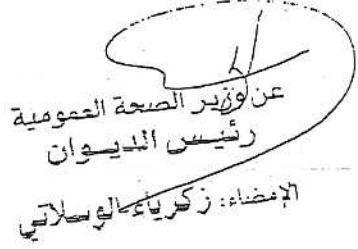 عن وزير الصحة العمومية
رئيس الديوان
الإمضاء: زكرياء الوسلاتي